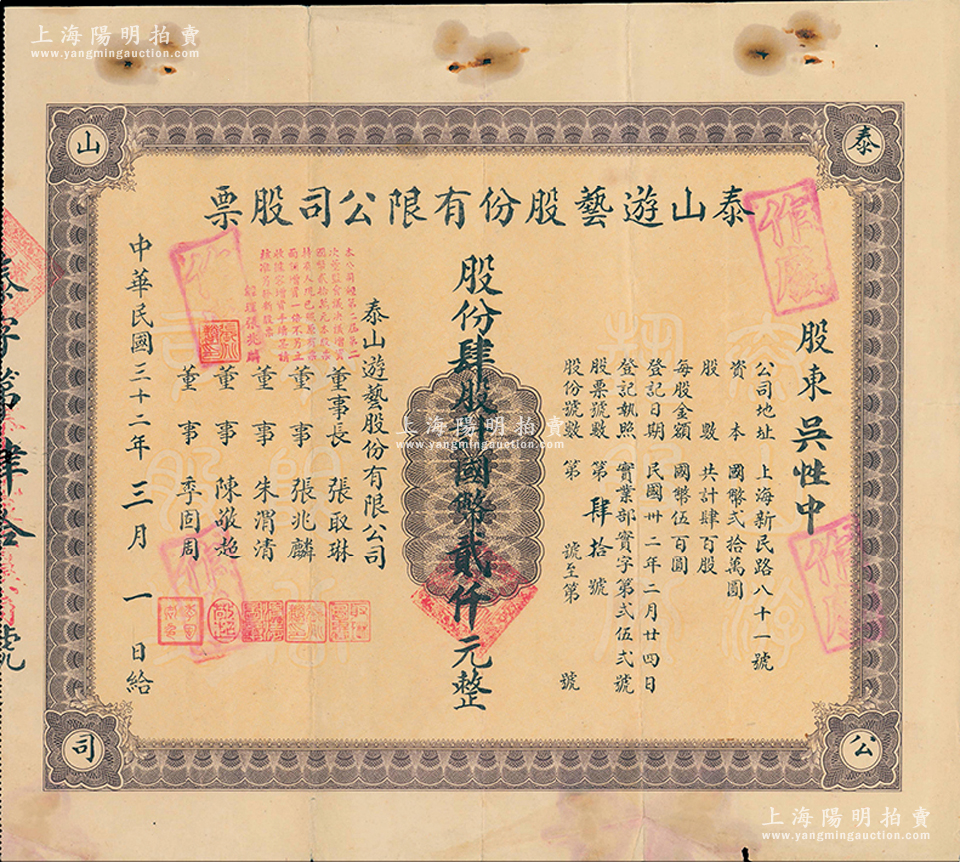 上海陽明拍賣
www.yangmingauction.com
上海陽明拍賣
www.yangmingauction.com
上海陽明拍賣
www.yangmingauction.com
泰
山
公
司
泰山遊藝股份有限公司股票
股東 吳性中
公司地址 上海新民路八十一號
資本 國幣弍拾萬圓
股數 共計肆百股
每股金額 國幣伍百圓
登記日期 民國卅二年二月廿四日
登記執照 實業部實字第弍伍弍號
股票號數 第肆拾號
股份號數 第 號至第 號
股份肆股計國幣貳仟元整
泰山遊藝股份有限公司
董事長 張取琳
董事 張兆麟
董事 朱渭清
董事 陳敬超
董事 季固周
中華民國三十二年三月一日給
作廢
作廢
作
作
泰字第肆拾號
上海陽明拍賣
www.yangmingauction.com
上海陽明拍賣
www.yangmingauction.com